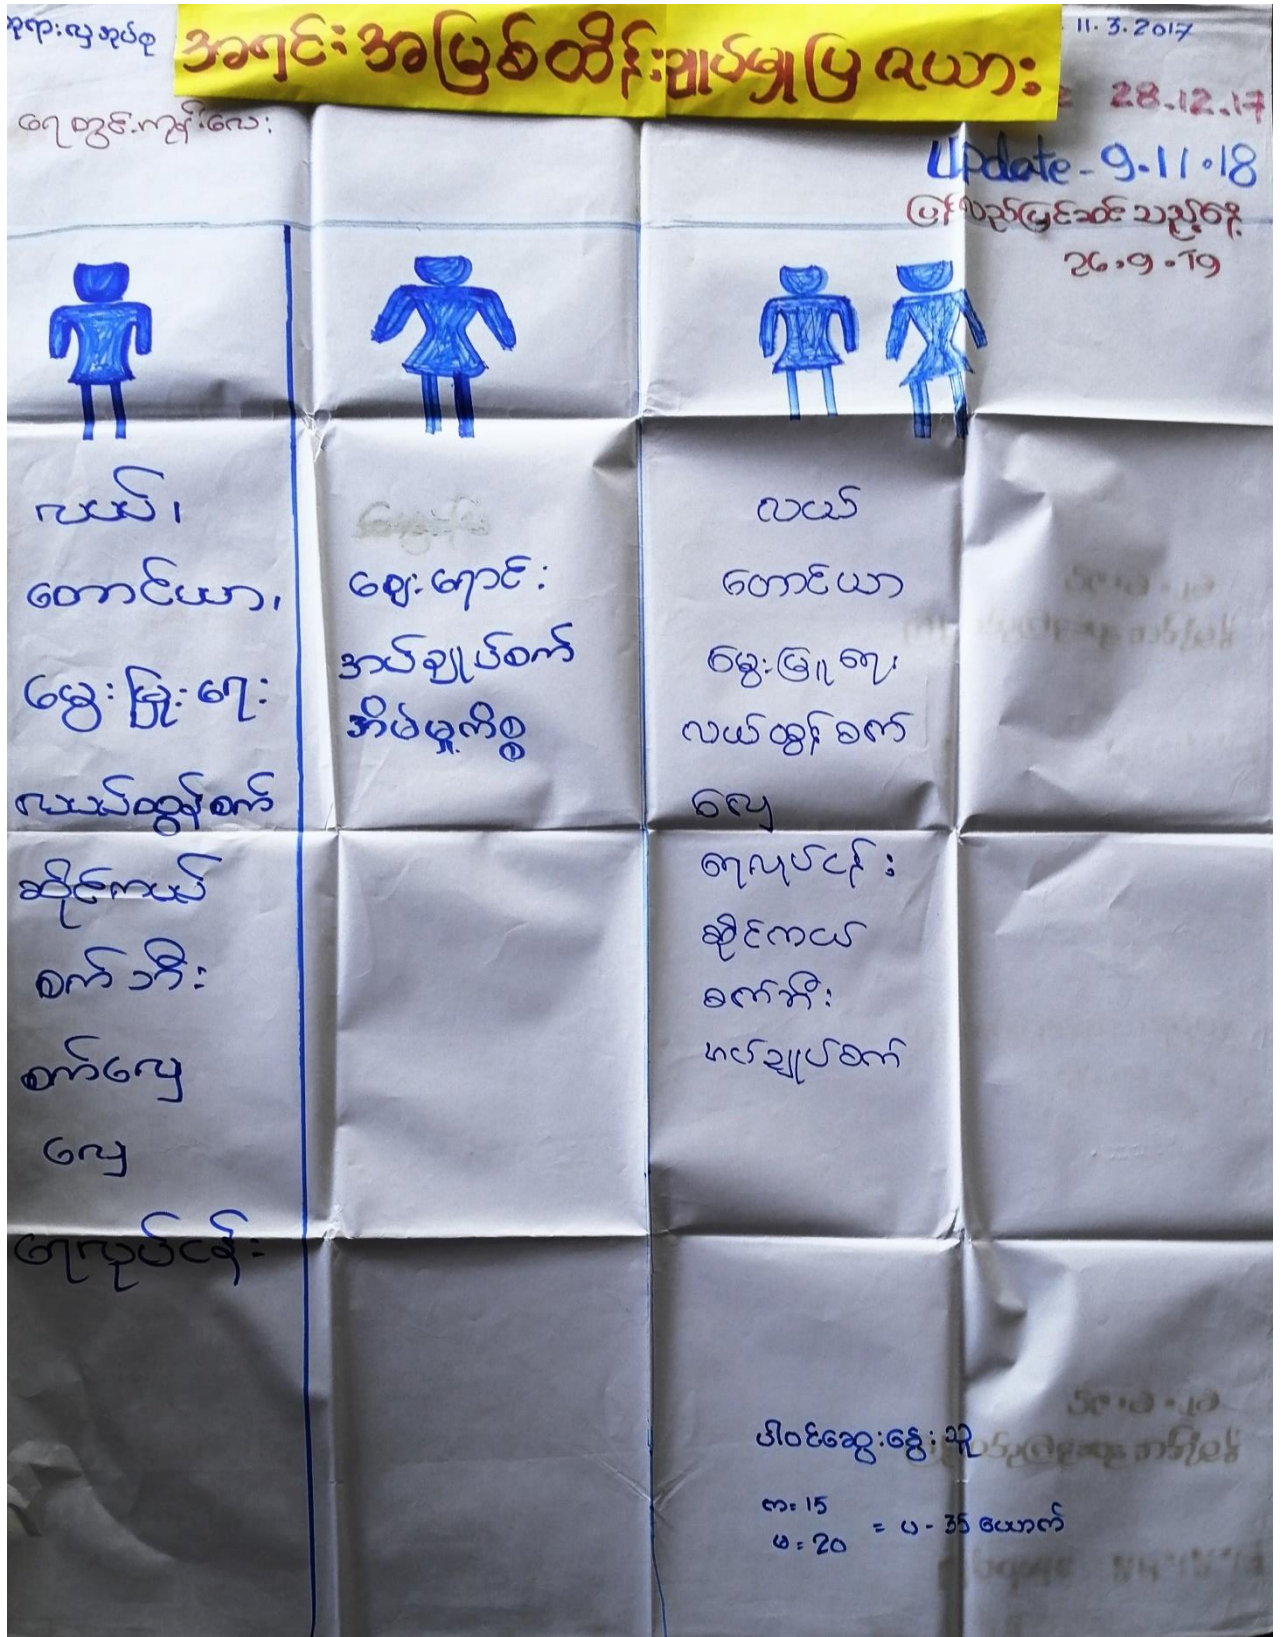 ဘုရားလှအုပ်စု
အရင်းအမြစ်ထိန်းချုပ်မှုပြဇယား
11.3.2017
28.12.17
ရေတွင်းကုန်းလေး
Update - 9.11.18
ပြန်လည်ပြင်ဆင်သည့်နေ့
26.9.19
လယ်၊
တောင်ယာ၊
မွေးမြူရေး
လယ်ထွန်စက်
ဆိုင်ကယ်
စက်ဘီး
စက်လှေ
လှေ
ရေလုပ်ငန်း
ဈေးရောင်း
အပ်ချုပ်စက်
အိမ်မှုကိစ္စ
လယ်
တောင်ယာ
မွေးမြူရေး
လယ်ထွန်စက်
လှေ
ရေလုပ်ငန်း
ဆိုင်ကယ်
စက်ဘီး
အပ်ချုပ်စက်
ပါဝင်ဆွေးနွေးသူ
က = 15
မ = 20
= ပ - 35 ယောက်